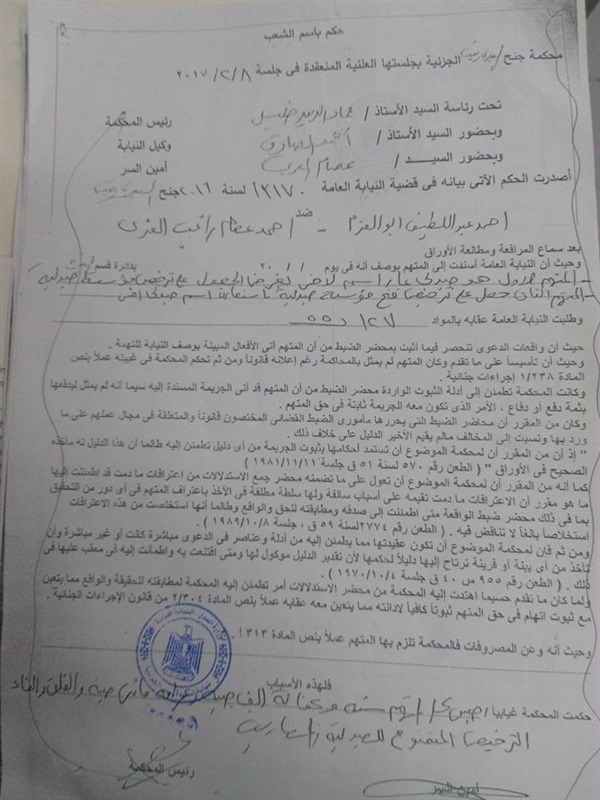 حكم باسم الشعب
محكمة جنح الجزئية بجلستها العلنية المنعقدة فى جلسة ٢٠١٧/٢/٨
تحت رئاسة السيد الأستاذ / عماد رئيس المحكمة
وبحضور السيد الأستاذ / أحمد وكيل النيابة
وبحضور الســيــد / عصام أمين السر
أصدرت الحكم الآتى بيانه فى قضية النيابة العامة ١٣١٧٠ لسنة ٢٠١٦ جنح
احمد عبد اللطيف ابو العزم - ضد / احمد عصام راغب
بعد سماع المرافعة ومطالعة الأوراق
وحيث أن النيابة العامة أسندت إلى المتهم بوصف أنه فى يوم / / ٢٠ بدائرة قسم
المتهم الاول هو صيدلى اسم لآخر لغرض الحصول على ترخيص مؤسسة صيدلية
المتهم الثانى حصل على ترخيص فتح مؤسسة صيدلية باستعارة اسم صيدلى
وطلبت النيابة العامة عقابه بالمواد
حيث أن واقعات الدعوى تنحصر فيما أثبت بمحضر الضبط من أن المتهم أتى الأفعال المبينة بوصف النيابة للتهمة .
وحيث أن تأسيساً على ما تقدم وكان المتهم لم يمثل بالمحاكمة رغم إعلانه قانوناً ومن ثم تحكم المحكمة فى غيبته عملاً بنص
المادة ١/٢٣٨ إجراءات جنائية .
وكانت المحكمة تطمئن إلى أدلة الثبوت الواردة محضر الضبط من أن المتهم قد أتى الجريمة المسندة إليه سيما أنه لم يمثل ليدفعها
بثمة دفع أو دفاع ، الأمر الذى تكون معه الجريمة ثابتة فى حق المتهم .
وكان من المقرر أن محاضر الضبط التى يحررها مأمورى الضبط القضائى المختصون قانوناً والمتعلقة فى مجال عملهم على ما
ورد بها ونسبت إلى المخالف مالم يقيم الأخير الدليل على خلاف ذلك .
" إذ أن من المقرر أن لمحكمة الموضوع أن تستمد أحكامها بثبوت الجريمة من أى دليل تطمئن إليه طالما أن هذا الدليل له مأخذه
الصحيح فى الأوراق " ( الطعن رقم ٥٧٠ لسنة ٥١ ق جلسة ١٩٨١/١١/١١ )
كما أنه من المقرر أن لمحكمة الموضوع أن تعول على ما تضمنه محضر جمع الاستدلالات من اعترافات ما دمت قد اطمئنت إليها
ما هو مقرر أن الاعترافات ما دمت تقيمه على أسباب سائغة ولها سلطة مطلقة فى الأخذ باعتراف المتهم فى أى دور من التحقيق
بما فى ذلك محضر ضبط الواقعة متى اطمئنت إلى صدقه ومطابقته للحق والواقع وطالما أنها استخلصت من هذه الاعترافات
استخلاصاً بالغاً لا تناقض فيه . ( الطعن رقم ٢٧٧٤ لسنة ٥٩ ق ، جلسة ١٩٨٩/١٠/٨ ) .
ومن ثم فإن لمحكمة الموضوع أن تكون عقيدتها مما يطمئن إليه من أدلة وعناصر فى الدعوى مباشرة كانت أو غير مباشرة وأن
تأخذ من أى بينة أو قرينة ترتاح إليها دليلاً لحكمها لأن تقدير الدليل موكول لها ومتى اقتنعت به واطمأنت إليه أى معقب عليها فى
ذلك . ( الطعن رقم ٩٥٥ س ٤٠ ق جلسة ١٩٧٠/١٠/٤ ) .
ولما كان ما تقدم حسبما اهتدت إليه المحكمة من محضر الاستدلالات أمر تطمئن إليه المحكمة لمطابقته للحقيقة والواقع مما يتعين
مع ثبوت اتهام فى حق المتهم ثبوتاً كافياً لادانته مما يتعين معه عقابه عملاً بنص المادة ٢/٣٠٤ من قانون الإجراءات الجنائية .
وحيث أنه وعن المصروفات فالمحكمة تلزم بها المتهم عملاً بنص المادة ٣١٣ أ
فلهذه الأسباب
حكمت المحكمة غيابياً / حبس سنة وكفالة الف جنيه والغلق والغاء
الترخيص الممنوح للصيدلية والمصاريف
أمين السر رئيس المحكمة